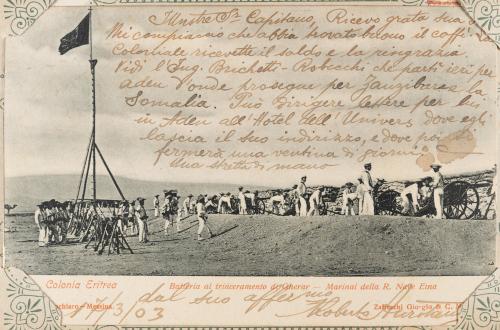 Illustre Sr. Capitano, Ricevo grata sua
Mi compiaccio che abbia trovato buono il caffè
Coloniale ricevetti il saldo e la ringrazio
Vidi l'Ing. Brichetti-Robecchi che partì ieri per
Aden d'onde prosegue per Zanzibar e la
Somalia. Può dirigere lettere per lui
in Aden all'Hotel dell'Univers, dove egli
lascia il suo indirizzo, e dove poi si
fermerà una ventina di giorni
Una stretta di mano
Colonia Eritrea
Batteria al trinceramento di Gherar — Marinai della R. Nave Etna
Messina.
Zabeschi Giorgio & C.
17/3/03
dal suo affezmo
Roberto